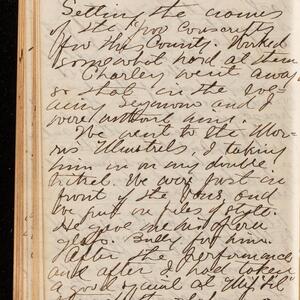 Setting the names
of the Conscripts
for this County. Worked
somewhat hard at them
Charley went away
so that in the eve-
ning Seymour and I
were without him.
We went to the Mor-
ris Minstrels, I taking
him in on my double
ticket. We were just in
front of the and
we put on piles of style.
He gave me his Opera
glass. Bully for him.
After the performance
and after I had taken
a good squeal at